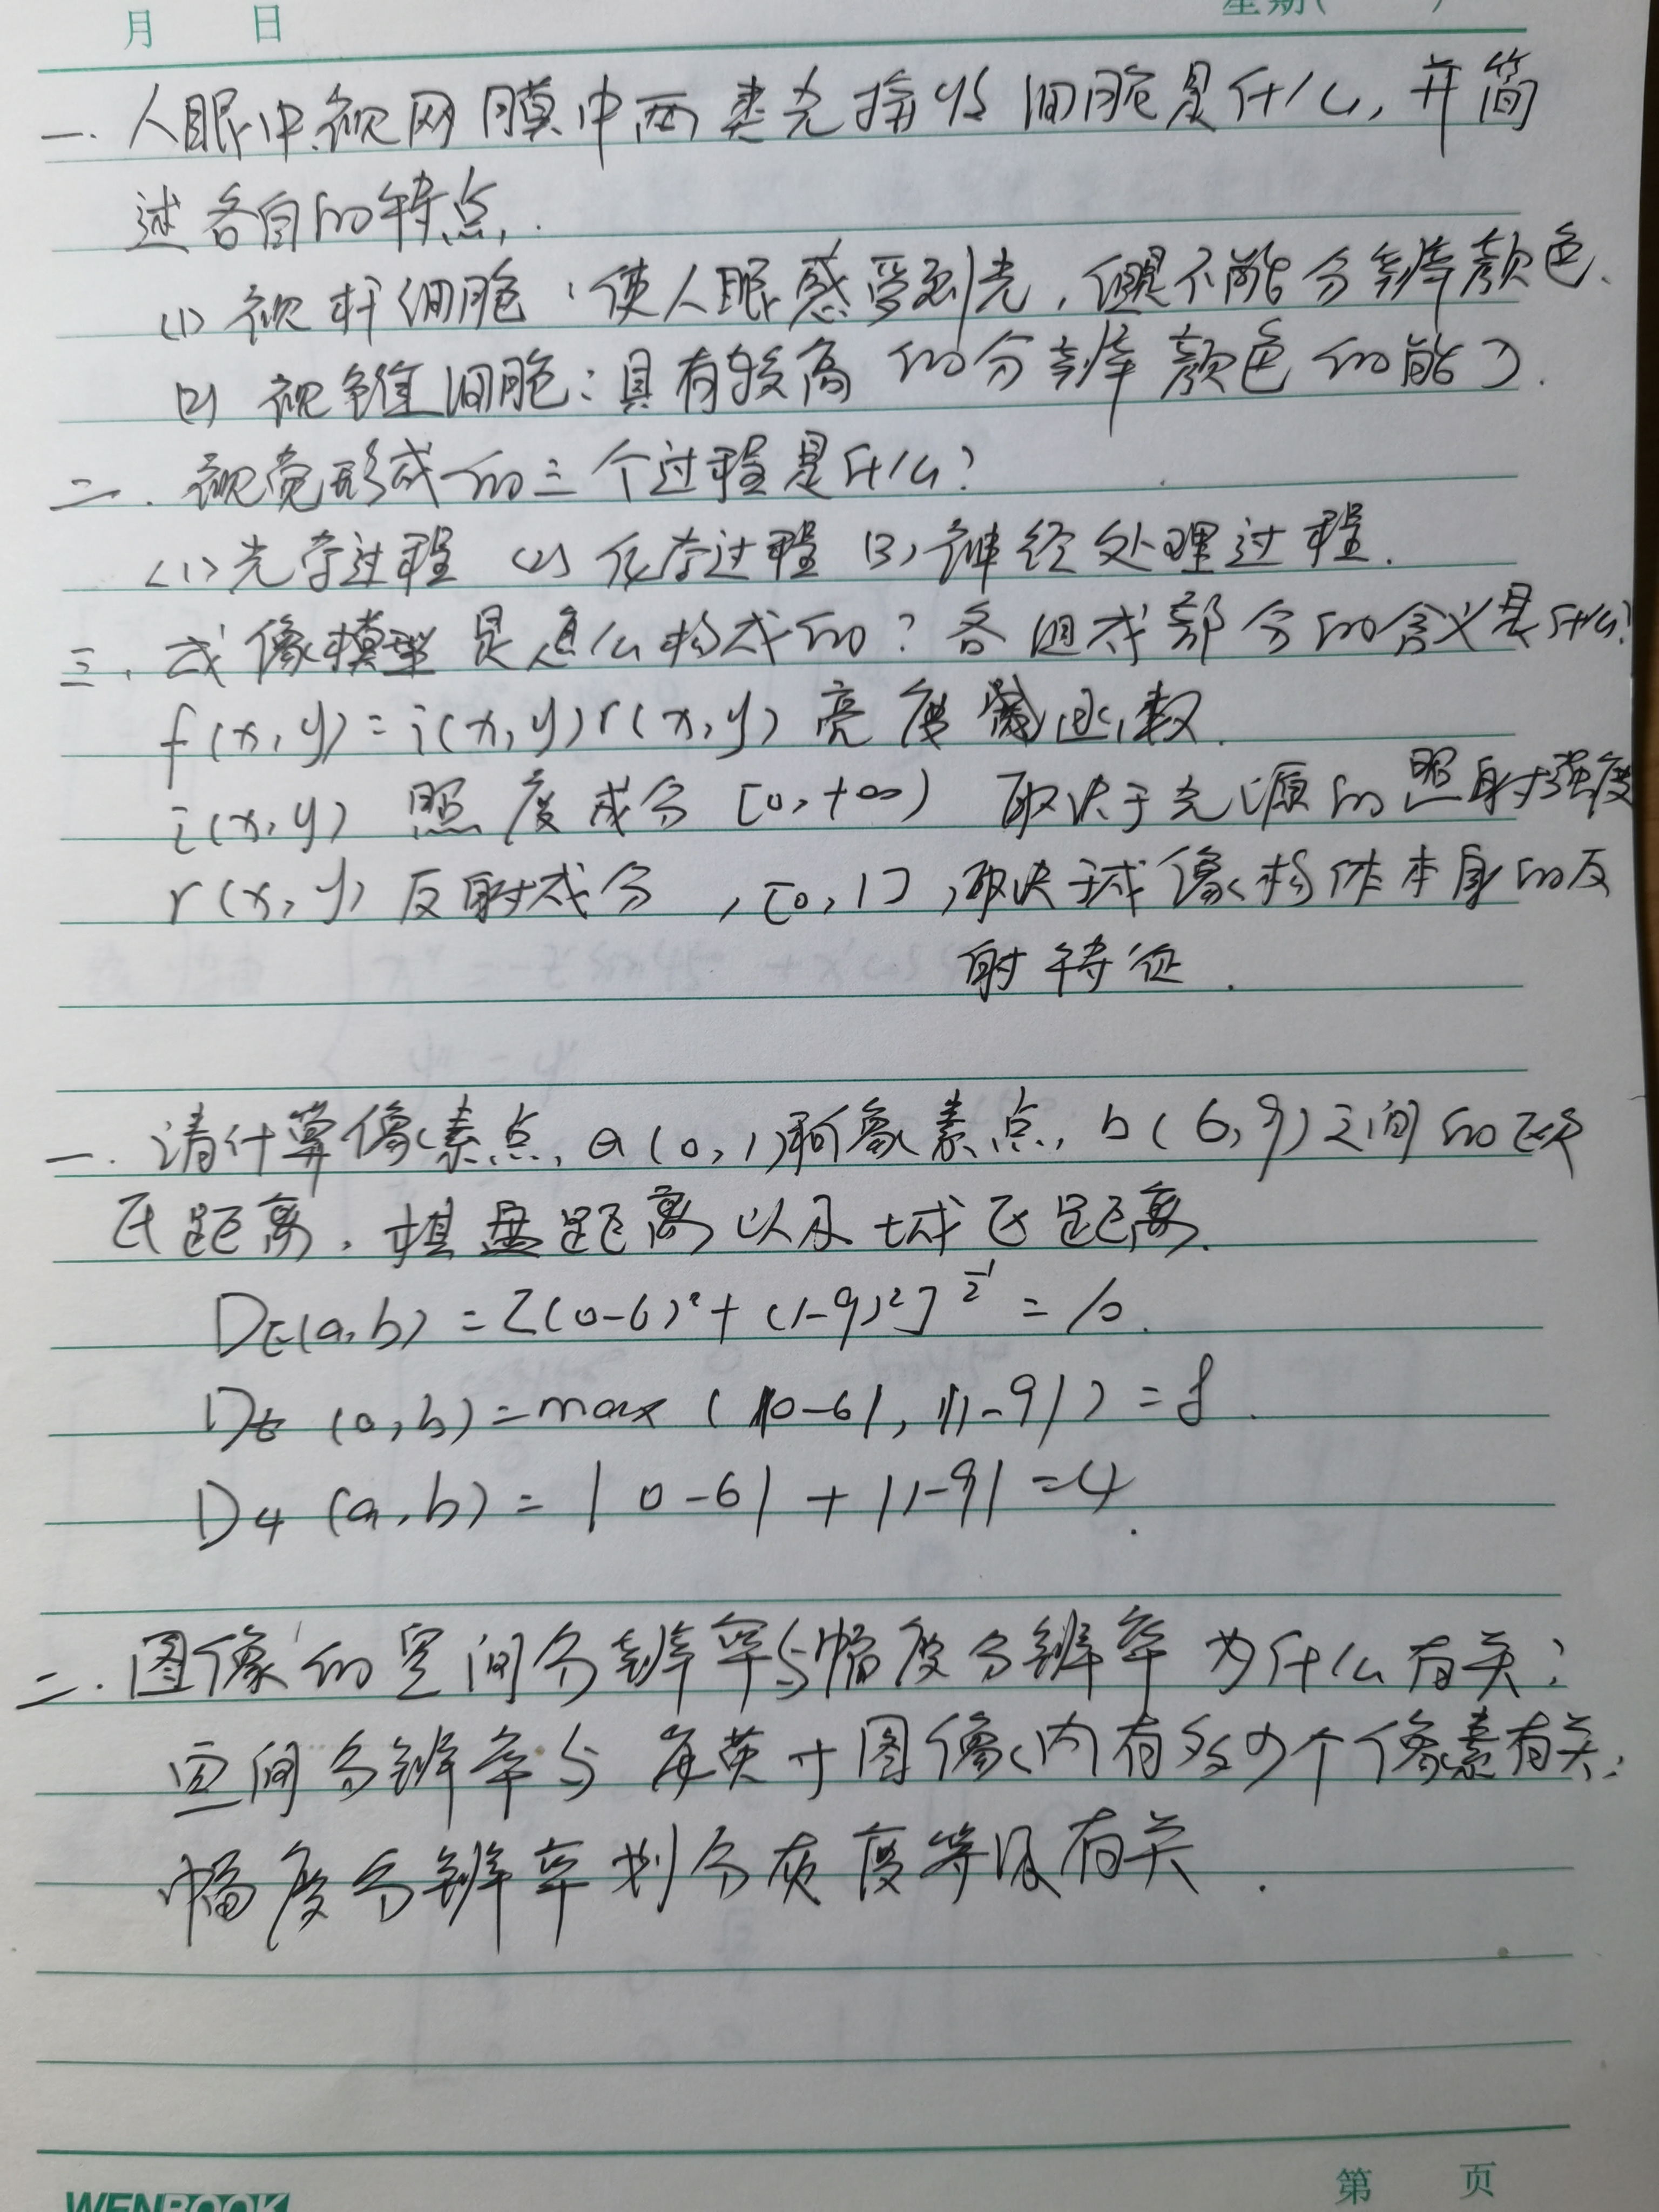 月 日 星期( )
一. 人眼中视网膜中两类光接收细胞是什么, 并简
述各自的特点.
(1) 视杆细胞: 使人眼感受到光, 但是不能分辨颜色.
(2) 视锥细胞: 具有较高的分辨颜色的能力.
二. 视觉形成的三个过程是什么?
(1) 光学过程 (2) 化学过程 (3) 神经处理过程.
三. 成像模型是怎么构成的? 各组成部分的含义是什么?
f(x,y)=i(x,y)r(x,y) 亮度函数.
i(x,y) 照度成分 [0,+∞) 取决于光源的照射强度
r(x,y) 反射成分, [0,1], 取决于成像物体本身的反
射特征.
一. 请计算像素点 a(0,1)和像素点 b(6,9)之间的欧
氏距离. 棋盘距离以及城区距离.
DE(a,b)=[(0-6)²+(1-9)²]^½=10.
D8(a,b)=max(|0-6|,|1-9|)=8.
D4(a,b)=|0-6|+|1-9|=4.
二. 图像的空间分辨率与幅度分辨率为什么有关?
空间分辨率与每英寸图像内有多少个像素有关;
幅度分辨率划分灰度等级有关.
WENBOOK 第 页